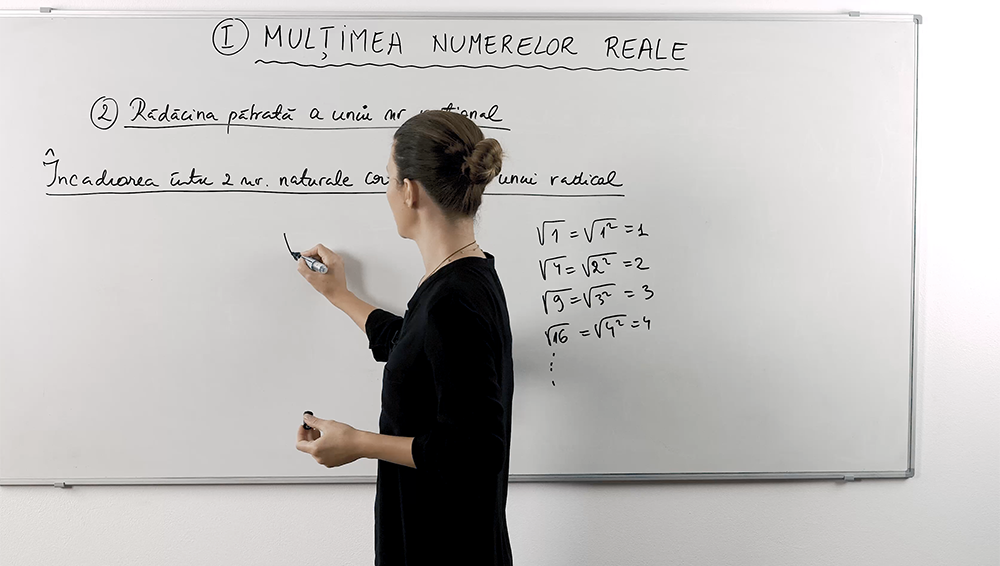 I MULȚIMEA NUMERELOR REALE
2 Rădăcina pătrată a unui nr. rațional
Încadrarea între 2 nr. naturale unui radical
√1 = √1² = 1
√4 = √2² = 2
√9 = √3² = 3
√16 = √4² = 4
⋮